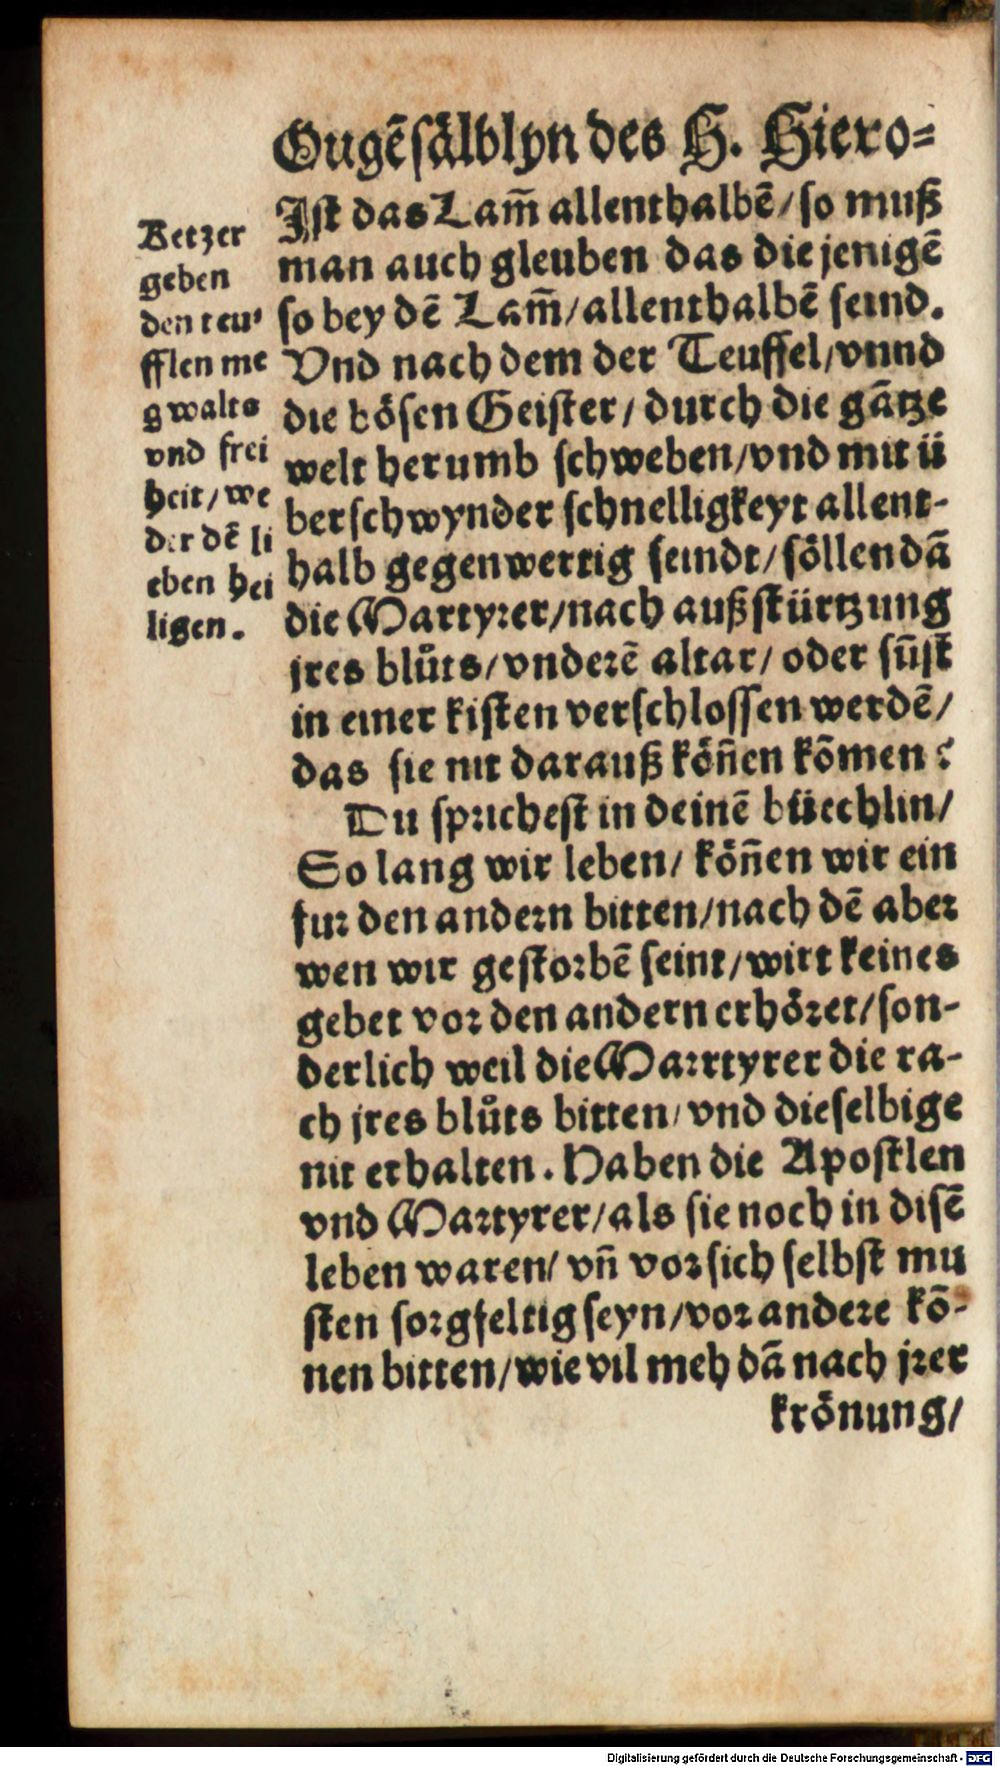 Ougẽsälblyn des H. Hiero⸗
Ist das Lam̃ allenthalbẽ/so muß
man auch gleuben das die jenigẽ
so bey dẽ Lam̃/allenthalbẽ seind.
Vnd nach dem der Teuffel/vnnd
die bösen Geister/durch die gãtze
welt herumb schweben/vnd mit ü
berschwynder schnelligkeyt allent-
halb gegenwertig seindt/söllen dã
die Martyrer/nach außstürtzung
jres blůts/vnderẽ altar/oder sũst
in einer kisten verschlossen werdẽ/
das sie nit darauß köñen kõmen?
Du sprichest in deinẽ büechlin/
So lang wir leben/köñen wir ein
fur den andern bitten/nach dẽ aber
wen wir gestorbẽ seint/wirt keines
gebet vor den andern erhöret/son-
derlich weil die Marrtyrer die ra-
ch jres blůts bitten/vnd dieselbige
nit erhalten. Haben die Apostlen
vnd Martyrer/als sie noch in disẽ
leben waren/vñ vor sich selbst mu
sten sorgfeltig seyn/vor andere kõ-
nen bitten/wie vil meh dã nach jrer
krönung/
Ketzer
geben
den teu⸗
fflen me
gwalts
vnd frei
heit/we
der dẽ li
eben hei
ligen.
Digitalisierung gefördert durch die Deutsche Forschungsgemeinschaft - DFG